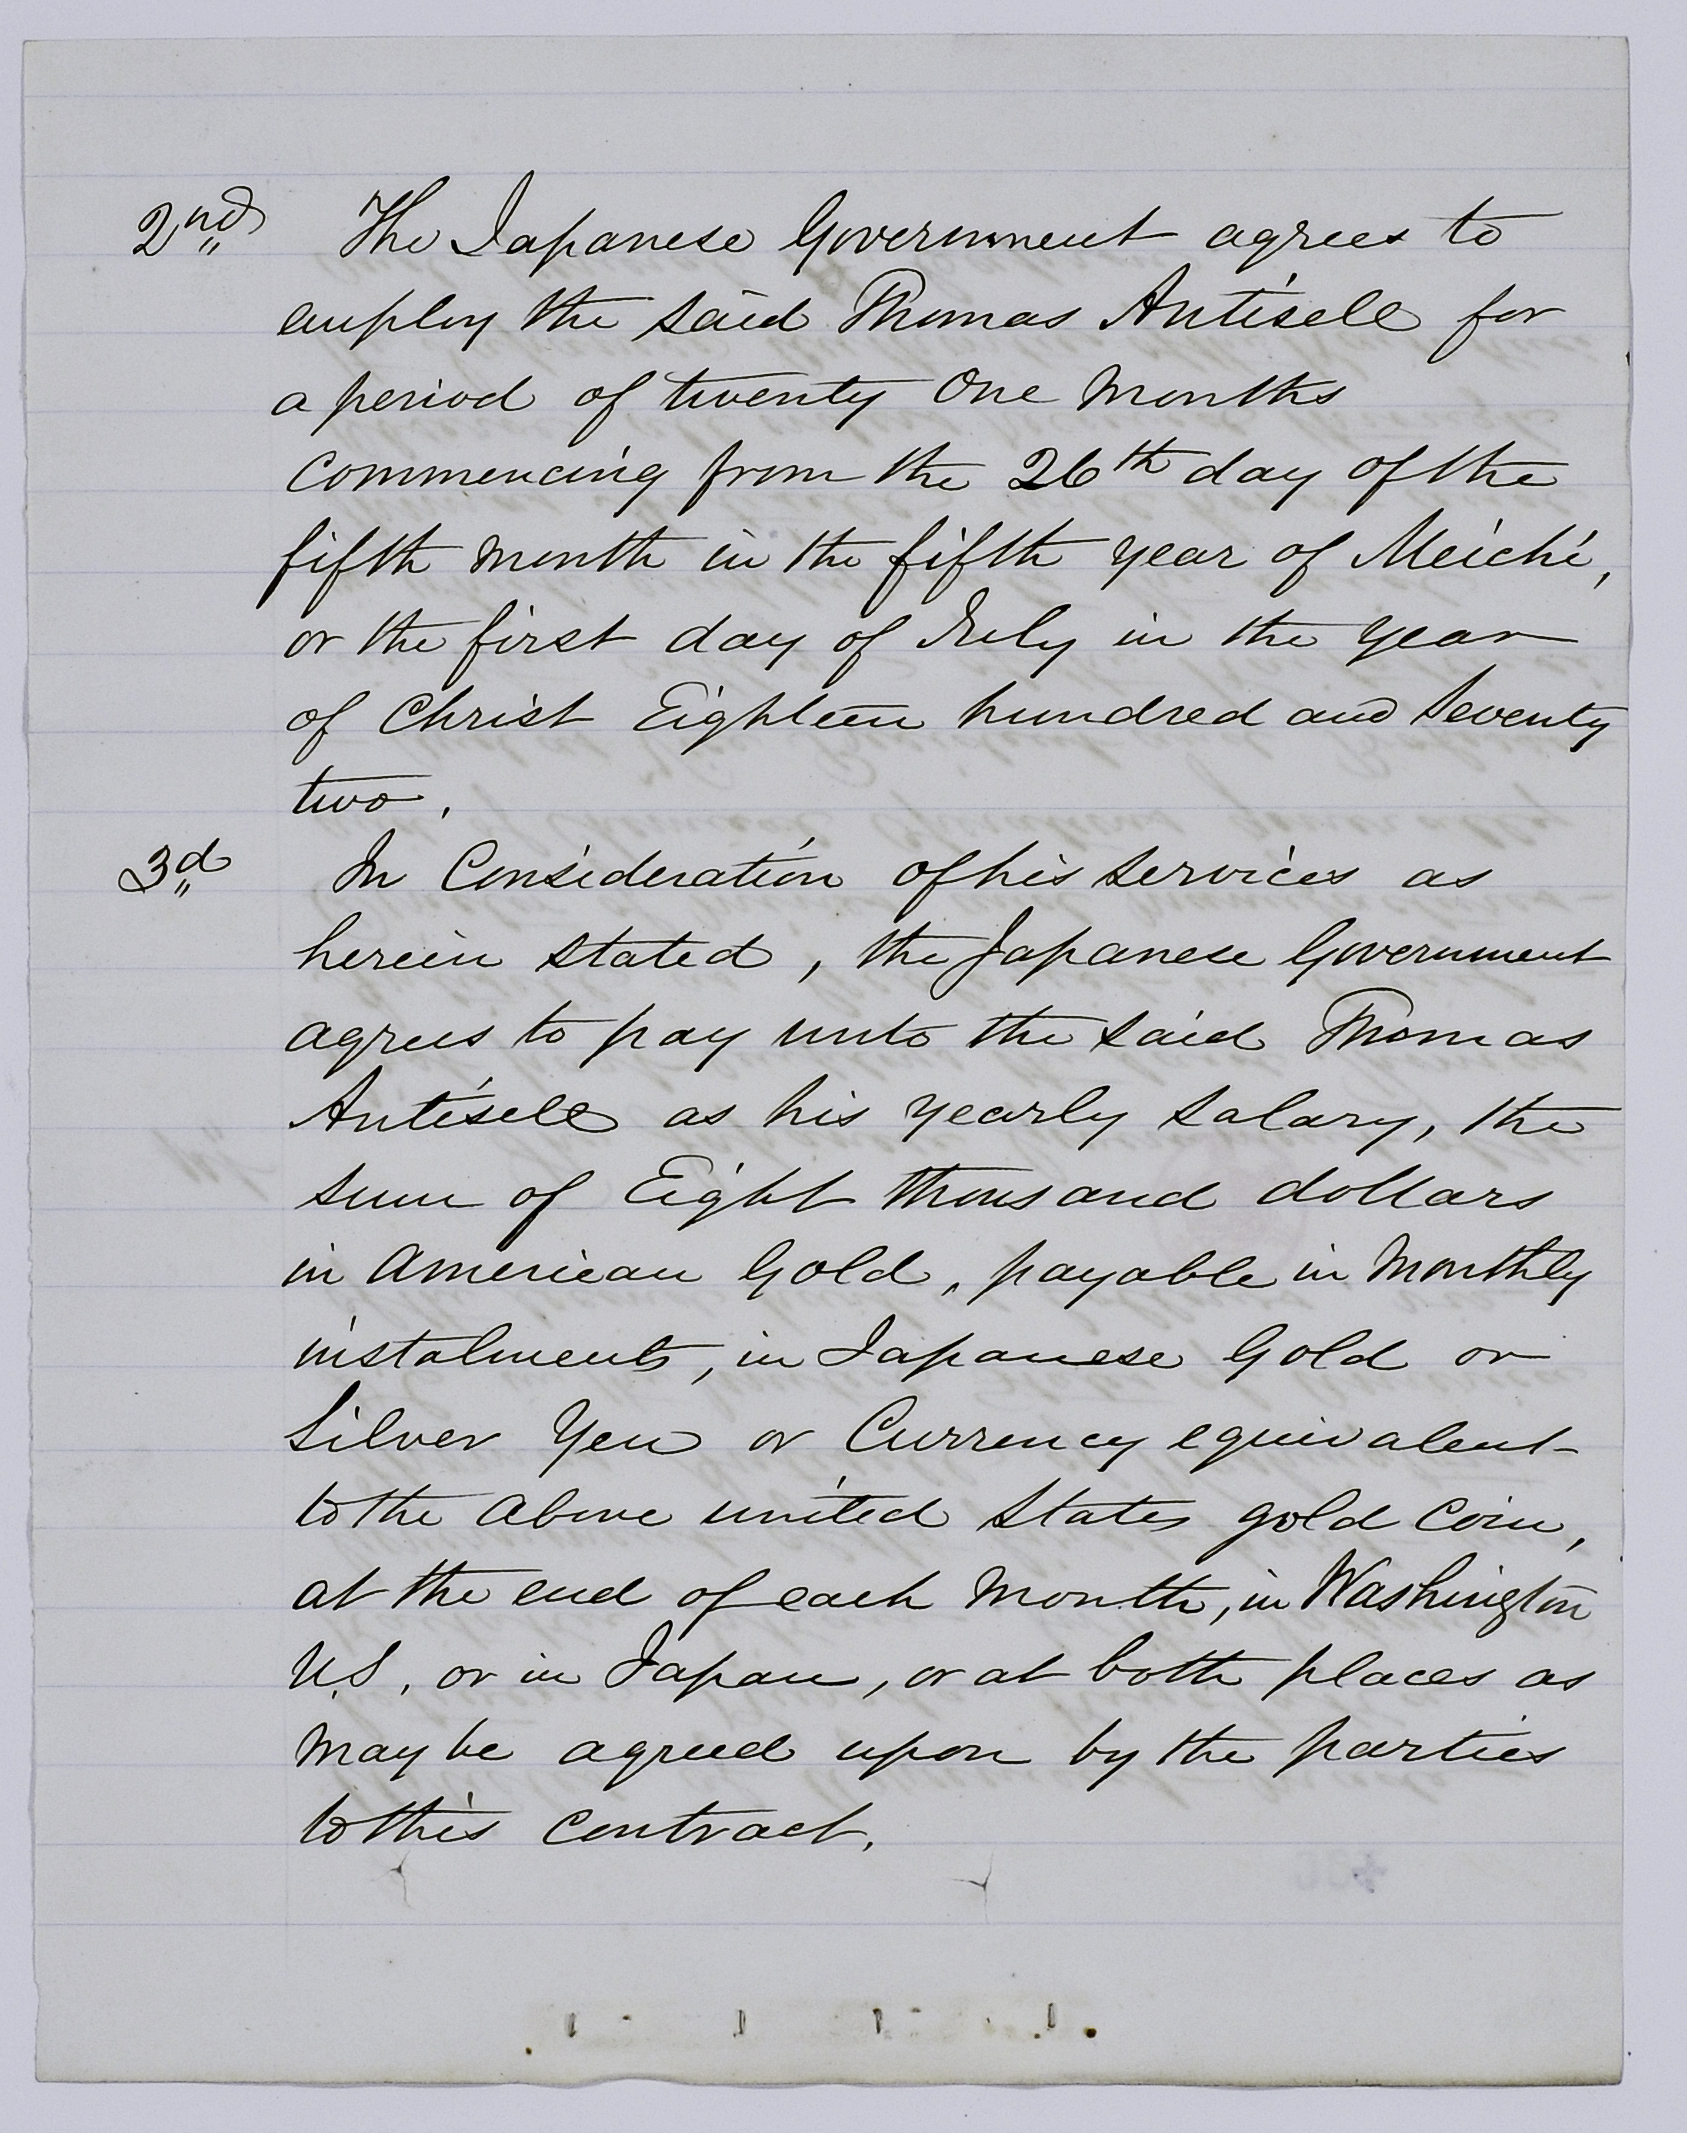 2nd The Japanese Government agrees to
employ the said Thomas Antisell for
a period of twenty One Months
Commencing from the 26th day of the
fifth month in the fifth year of Meichi,
or the first day of July in the year
of Christ Eighteen hundred and Seventy
two.
3d In Consideration of his services as
herein stated, the Japanese Government
agrees to pay unto the said Thomas
Antisell as his yearly salary, the
sum of Eight thousand dollars
in American Gold, payable in Monthly
instalments, in Japanese Gold or
Silver Yen or Currency equivalent
to the above united States gold Coin,
at the end of each Month, in Washington
U.S., or in Japan, or at both places as
may be agreed upon by the parties
to this contract.